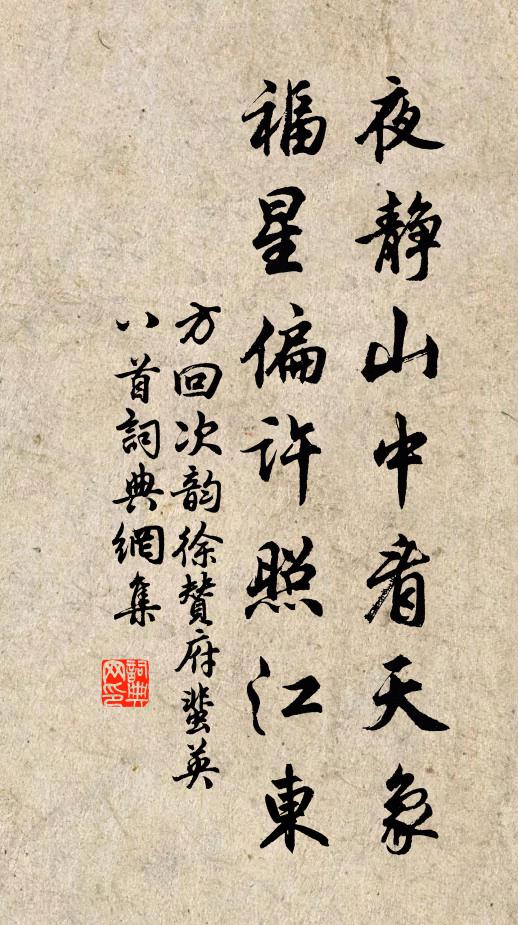 夜静山中看天象
福星偏許照江東
方回次韵徐贊府蜚英
八首詞典網集
詞典
网印